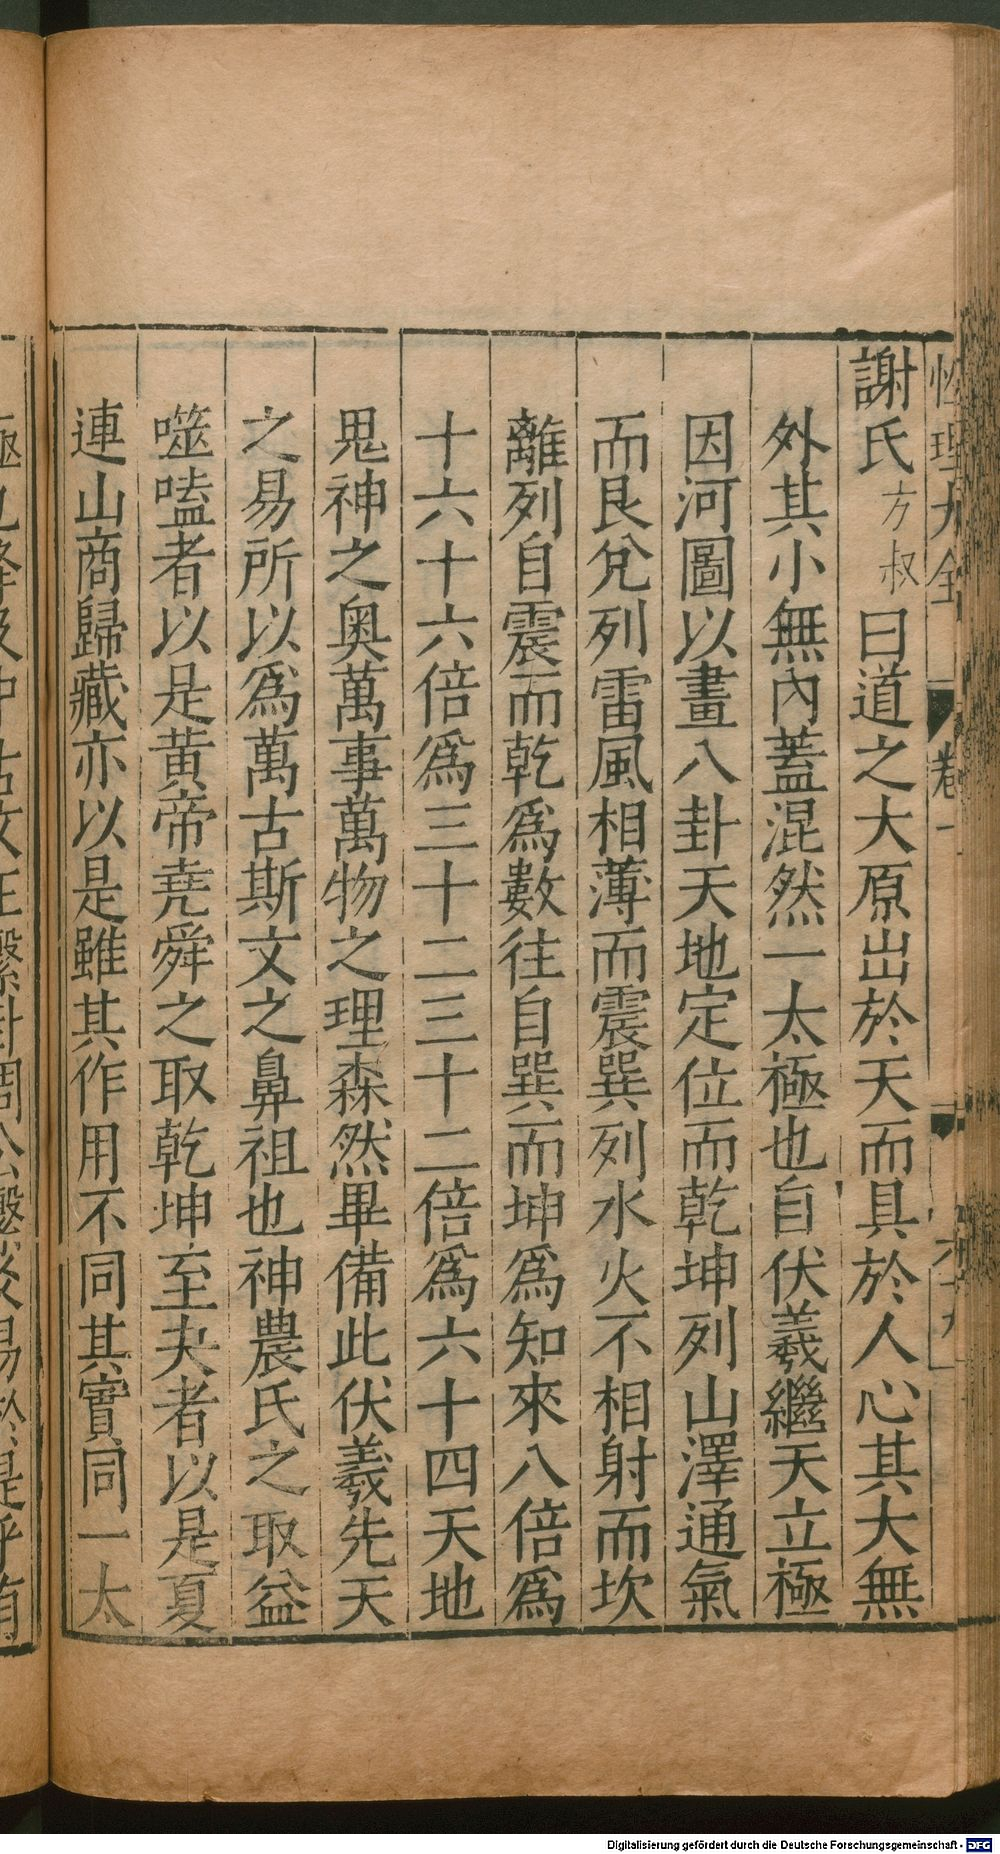 性理大全 卷一 六十九
謝氏方叔曰道之大原出於天而具於人心其大無
外其小無內蓋混然一太極也自伏羲繼天立極
因河圖以畫八卦天地定位而乾坤列山澤通氣
而艮兌列雷風相薄而震巽列水火不相射而坎
離列自震而乾爲數往自巽而坤爲知來八倍爲
十六十六倍爲三十二三十二倍爲六十四天地
鬼神之奧萬事萬物之理森然畢備此伏羲先天
之易所以爲萬古斯文之鼻祖也神農氏之取益
噬嗑者以是黃帝堯舜之取乾坤至夬者以是夏
連山商歸藏亦以是雖其作用不同其實同一太
Digitalisierung gefördert durch die Deutsche Forschungsgemeinschaft - DFG